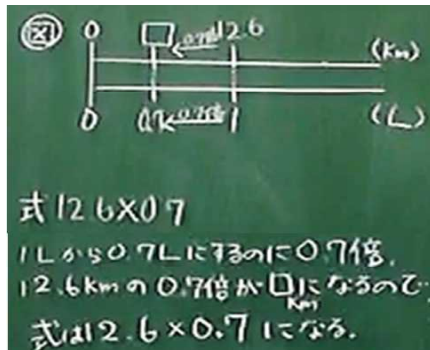 図 0 □ 0.7倍 12.6 (km)
0 0.7 0.7倍 1 (L)
式 12.6×0.7
1Lから0.7Lにするのに0.7倍。
12.6kmの0.7倍が□kmになるので
式は12.6×0.7になる。